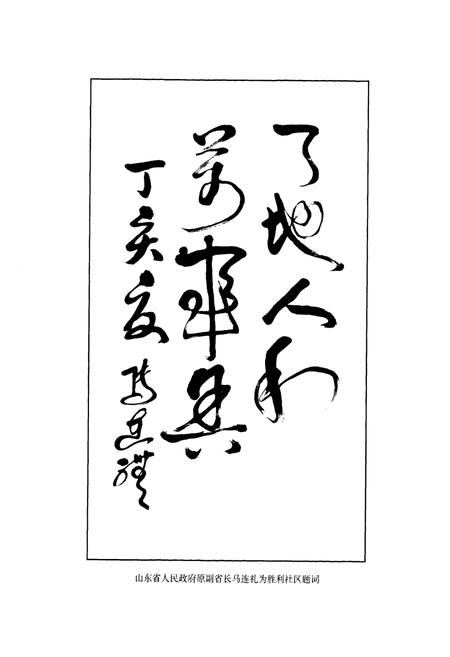 天地人和
萬事興
丁亥夏 馬連禮
山东省人民政府原副省长马连礼为胜利社区题词